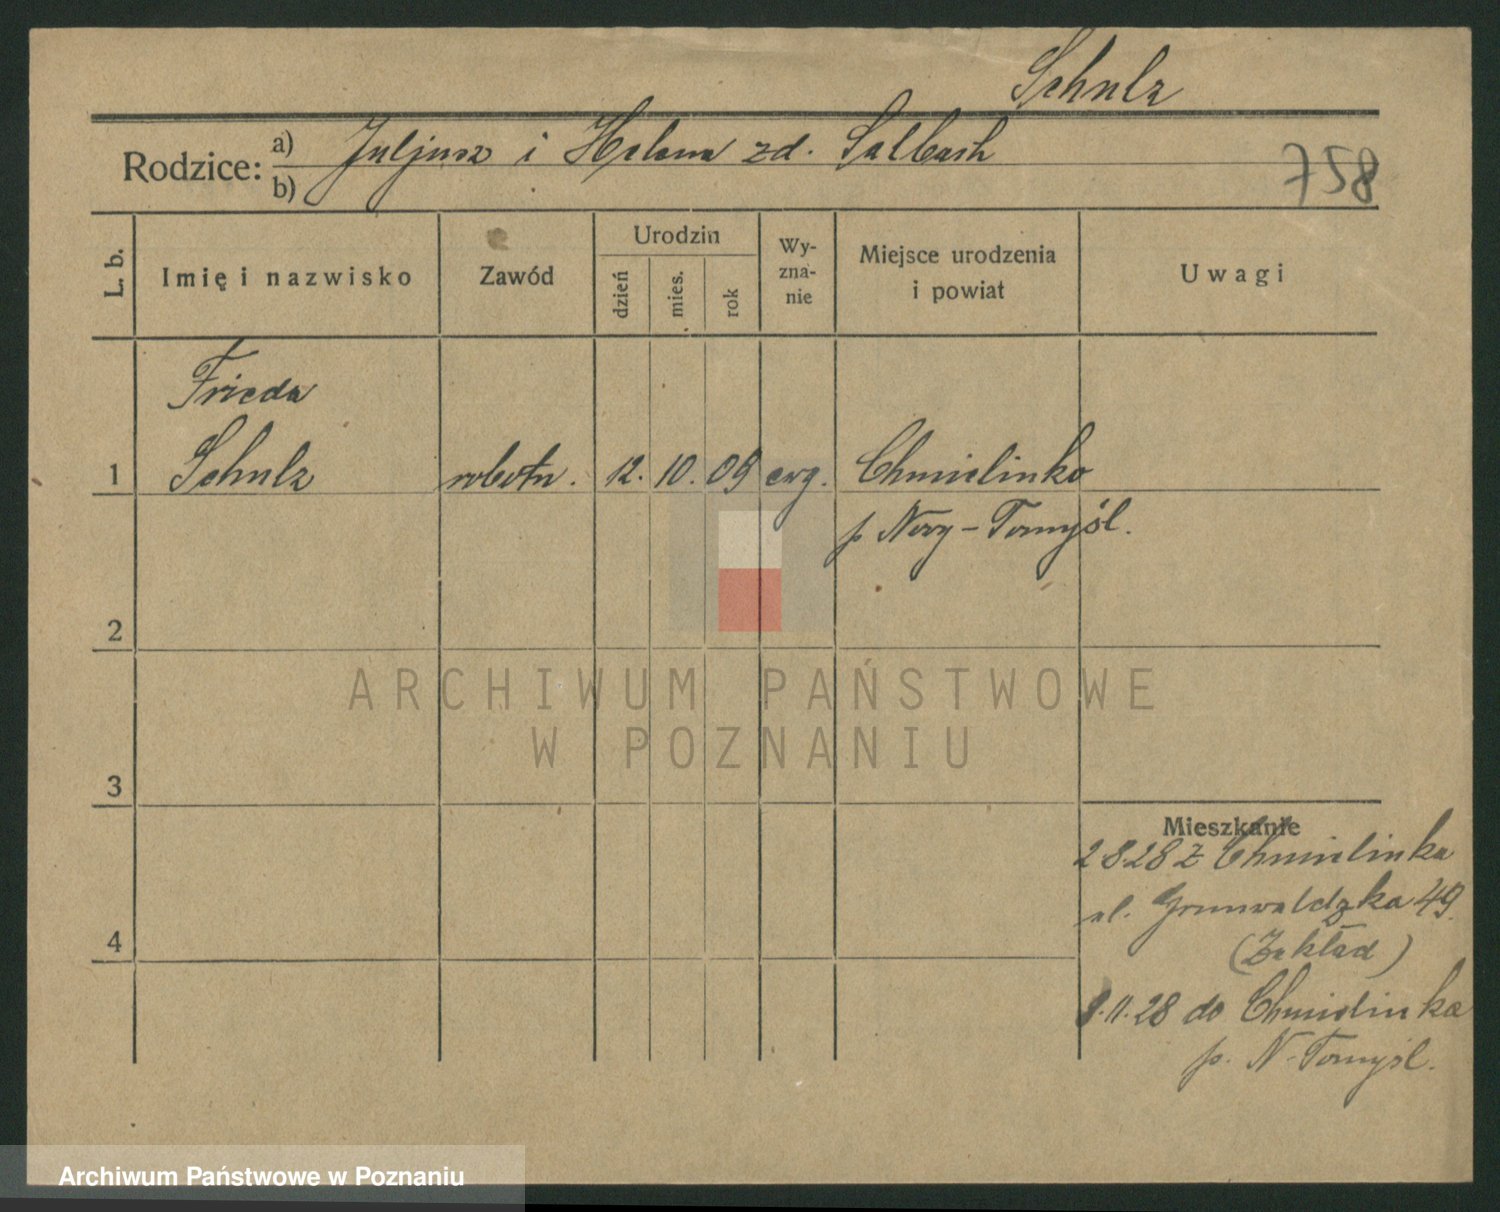 Schulz
Rodzice: a) Juljusz i Helena zd. Salbach
b)
758
L. b. Imię i nazwisko Zawód Urodzin dzień mies. rok Wy-zna-nie Miejsce urodzenia i powiat Uwagi
Frieda
1 Schulz robotn. 12. 10. 09 ewg. Chmielinko
p Nowy-Tomyśl.
2
ARCHIWUM PAŃSTWOWE
W POZNANIU
3
Mieszkanie
2 8 28 z Chmielinka
ul. Grunwaldzka 49.
(Zakład)
4
8.11.28 do Chmielinka
p. N-Tomyśl.
Archiwum Państwowe w Poznaniu